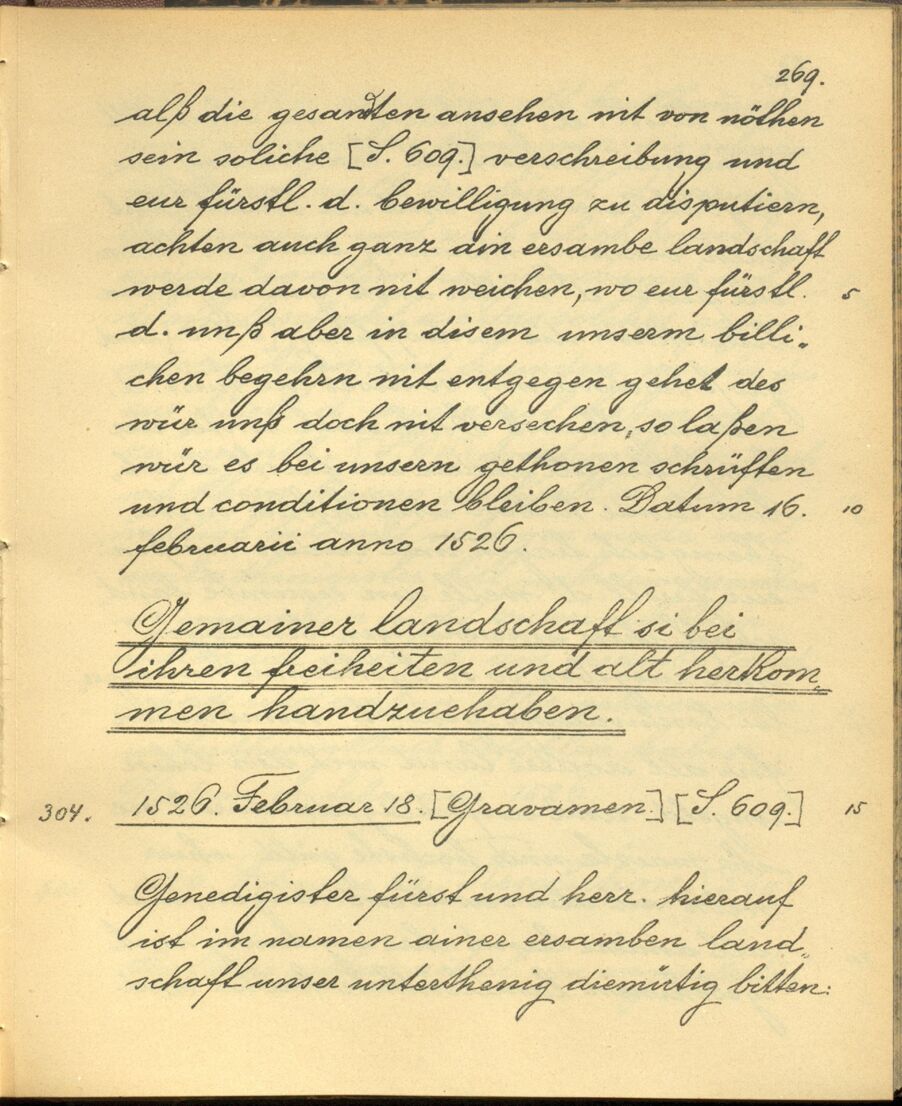 269.
alß die gesandten ansehen nit von nöthen
sein soliche [S. 609.] verschreibung und
eur fürstl. d. bewilligung zu disputiern,
achten auch ganz ain ersambe landschaft
werde davon nit weichen, wo eur fürstl. 5
d. unß aber in disem unserm billi„
chen begehrn nit entgegen gehet des
wür unß doch nit versechen, so laßen
wür es bei unsern gethonen schrüften
und conditionen bleiben. Datum 16. 10
februarii anno 1526.
Gemainer landschaft si bei
ihren freiheiten und alt herkom„
men handzuehaben.
304. 1526. Februar 18. [Gravamen.] [S. 609.] 15
Genedigister fürst und herr. hierauf
ist im namen ainer ersamben land„
schaft unser unterthenig diemütig bitten: